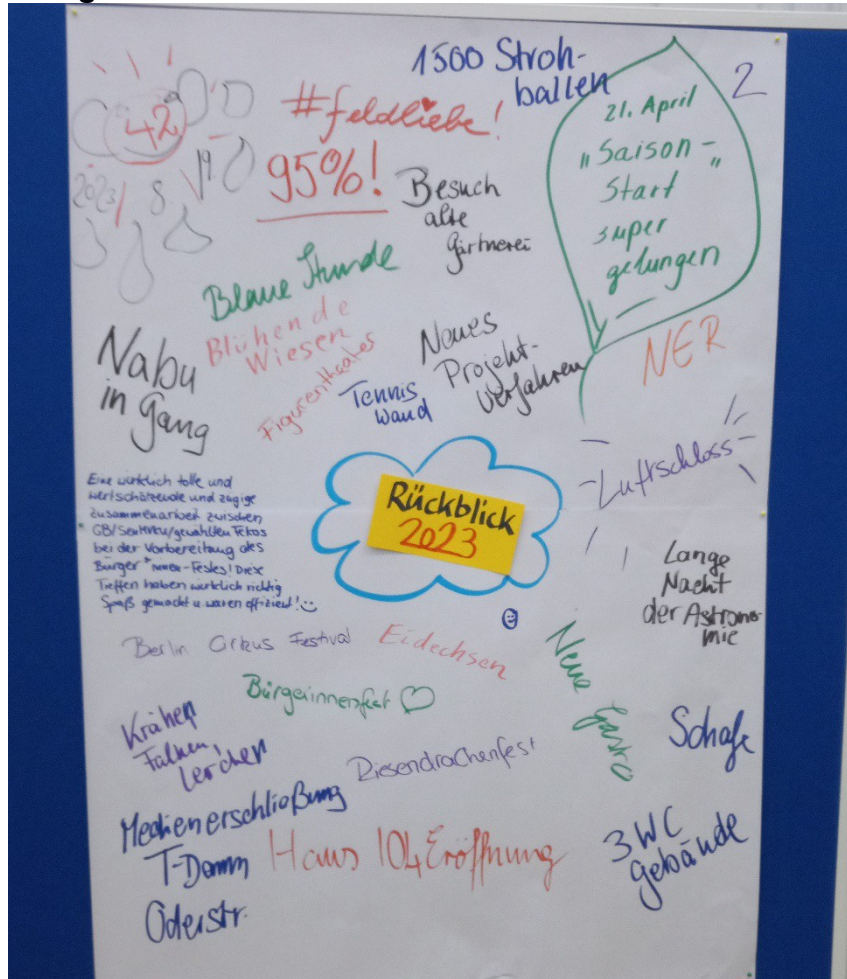 1500 Stroh-
ballen
2
42
#feldliebe!
21. April
"Saison-"
Start
super
gelungen
2023/8
95%!
Besuch
alte
Gärtnerei
Blaue Stunde
Blühende
Wiesen
Nabu
in Gang
Figurentheater
Tennis
wand
Neues
Projekt-
verfahren
NER
Luftschloss
Eine wirklich tolle und
wertschätzende und zügige
Zusammenarbeit zwischen
GB/SenMVKU/gewählten Fekos
bei der Vorbereitung des
Bürger*innen-Festes! Diese
Treffen haben wirklich richtig
Spaß gemacht u. waren effizient!
Rückblick
2023
Lange
Nacht
der Astrono-
mie
Berlin Cirkus Festival
Eidechsen
Neue Gastro
Bürgerinnenfest
Krähen
Falken,
Lerchen
Riesendrachenfest
Schafe
Medienerschließung
T-Damm
Oderstr.
Haus 104 Eröffnung
3 WC
Gebäude